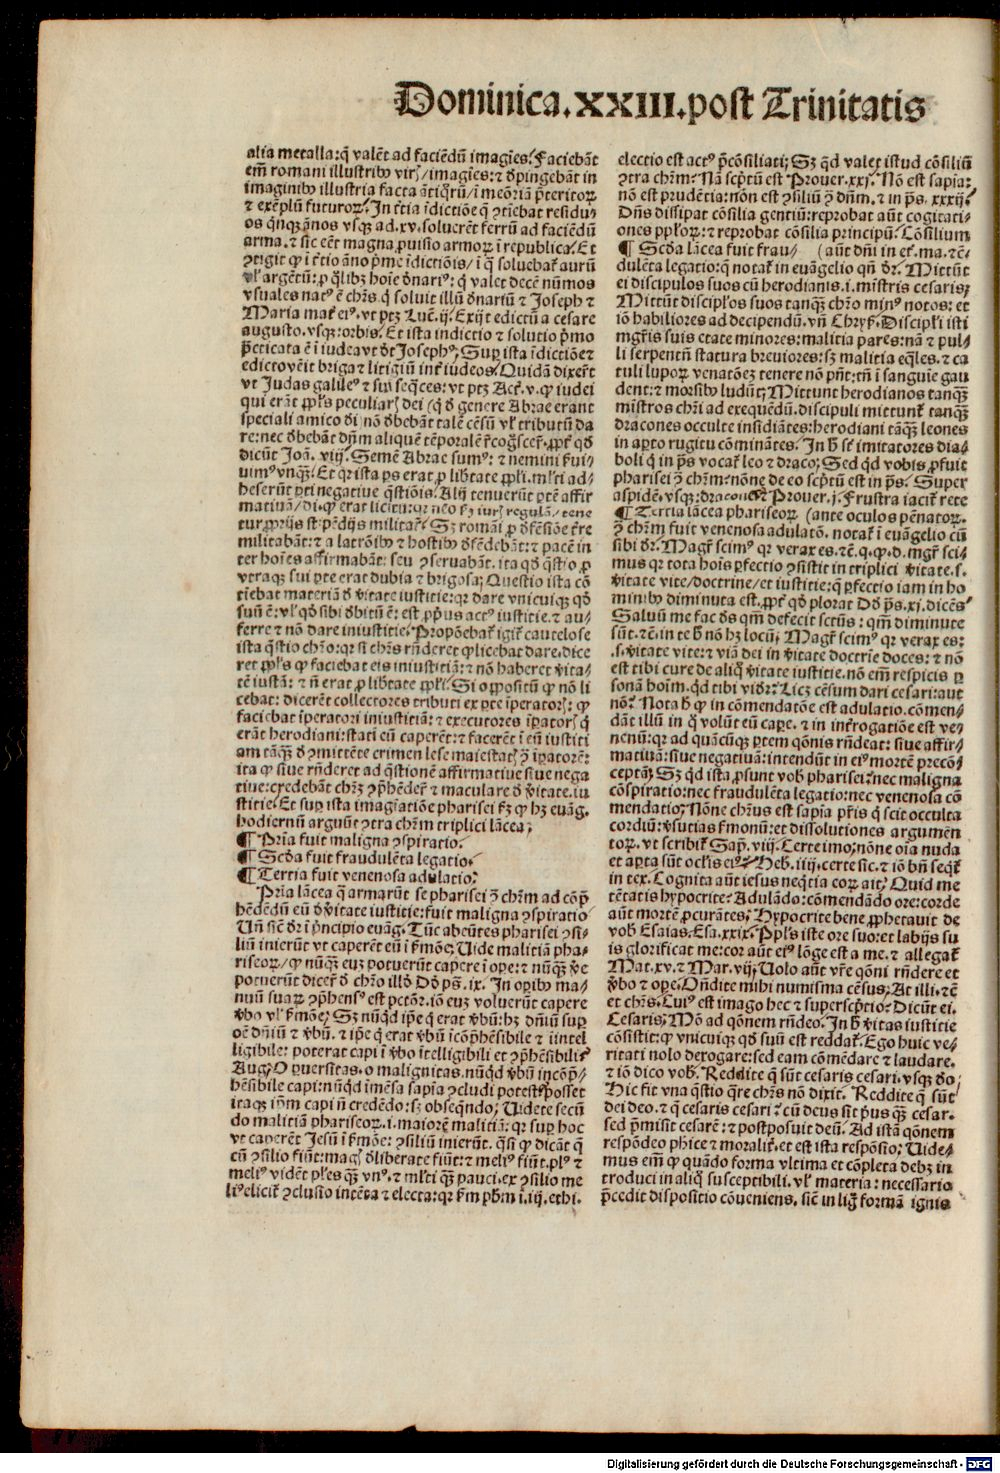 Dominica.XXIII.post Trinitatis
alia metalla:q̄ valēt ad faciēdū imagīes. Faciebāt
em̄ romani illustribꝰ viris/imagīes: ⁊ depingebāt in
imaginibꝰ illustria facta ātiq̄rū/ ī meōriā p̄teritoꝝ
⁊ exēplū futuroꝝ. In t̄tia īdictiōe q̄ ꝯtīebat residu⸗
os qͥnqꝫ ānos vsqꝫ ad.xv. soluerēt ferrū ad faciēdū
arma. ⁊ sic eēt magna ꝓuisio armoꝝ ī republica. Et
ꝯtigit ꝙ ī t̄tio āno p̄me īdictiōis/ ī q̄ soluebat᷑ aurū
vl̓ argētū: ꝓ qͣlibꝫ hoīe d̓nariꝰ: q̄ valet decē nūmos
vsuales natꝰ ē chr̄s. q̄ soluit illū d̓nariū ⁊ Joseph ⁊
Maria mat̄ eiꝰ. vt ptꝫ Luc̄.ij. Exijt edictū a cesare
augusto. vsqꝫ: orbis. Et ista indictio ⁊ solutio p̄mo
p̄cticata ē ī iudea vt d̓t Josephꝰ; Suꝑ ista īdictiōe ⁊
edicto vēit briga ⁊ litigiū int̄ iudeos. Quidā dixer̄t
vt Judas galileꝰ ⁊ sui seq̄ces: vt ptꝫ Act̄.v. ꝙ iudei
qui erāt ꝓpl̓s peculiaris dei (q̄ d̓ genere Abrae erant
speciali amico di) nō d̓bebāt talē cēsū vl̓ tributū da
re: nec d̓bebāt dn̄m aliquē tēporalē r̄cog̓scer̄. ꝓpt̄ qd̓
dicūt Joā. viij. Semē Abrae sumꝰ: ⁊ nemini ẜui⸗
uimꝰ vnqꝫ. Et qꝛ ista ꝑs erat ꝓ lib̄tate ꝓpl̓i. ml̓ti ad⸗
heserūt ꝑti negatiue q̄stiōis. Alij tenuerūt ꝑtē affir
matiuā/ di. ꝙ erat licitū: qꝛ
tur ꝓprijs stipēdijs militar̄. Sꝫ romāi ꝓ d̓fēsiōe t̄re
militabāt: ⁊ a latrōibꝰ ⁊ hostibꝰ d̓fēdebāt: ⁊ pacē in
ter hoīes affirmabāt: seu ꝯseruabāt. ita qd̓ q̄stio ꝓ
vtraqꝫ sui ꝑte erat dubia ⁊ brigosa; Questio ista cō
tīebat materiā d̓ v̓itate iusticie: qꝛ dare vnicuiqꝫ qd̓
suū ē: vl̓ qd̓ sibi d̓bitū ē: est ꝓpꝰ actꝰ iusticie. ⁊ au⸗
ferre ⁊ nō dare iniusticie. Propōebat᷑ igit᷑ cautelose
ista q̄stio chr̄o: qꝛ si chr̄s rn̄deret ꝙ licebat dare. dice
ret ꝓpl̓s ꝙ faciebat eis iniusticiā: ⁊ nō haberet v̓ita⸗
tē iustā: ⁊ n̄ erat ꝓ lib̄tate ꝓpl̓i. Si oppositū ꝙ nō li
cebat: dicerēt collectores tributi ex ꝑte īperatoris: ꝙ
faciebat īperatori iniusticiā: ⁊ executores īꝑatoris q̄
erāt herodiani: stati eū caperēt: ⁊ facerēt ī eū iusticī
am tāqꝫ d̓ ꝯmittēte crimen lese maiestatis ꝯ īꝑatorē:
ita ꝙ siue rn̄deret ad q̄stionē affirmatiue siue nega
tiue: credebāt chr̄ꝫ ꝯp̄hēder̄ ⁊ maculare d̓ v̓itate. iu
sticie. Et suꝑ ista imagiatiōe pharisei ẜꝫ ꝙ hꝫ euāg.
hodiernū arguūt ꝯtra chr̄m triplici lācea;
¶ Pr̄ia fuit maligna ꝯspiratio.
¶ Scd̓a fuit fraudulēta legatio.
¶ Tertia fuit venenosa adulatio.
Pr̄ia lācea q̄ armarūt se pharisei ꝯ chr̄m ad cōp̄
hēdēdū eū d̓ v̓itate iusticie: fuit maligna ꝯspiratio
Vn̄ sic d̓r ī p̄ncipio euāg. Tūc abeūtes pharisei ꝯsi⸗
liū inierūt vt caperēt eū ī ẜmōe; Uide maliciā pha⸗
riseoꝝ/ ꝙ nūqꝫ euꝫ potuerūt capere ī oꝑe: ⁊ nūqꝫ v̓e
potuerūt dicer̄ d̓ chr̄o illd̓ Dd̓ ps̄.ix. In oꝑibꝰ ma⸗
nuū suaꝝ ꝯp̄hensꝰ est pctōr. iō euꝫ voluerūt capere
v̓bo vl̓ ẜmōe; Sꝫ nūqd̓ ip̄e q̄ erat v̓bū: hꝫ dn̄iū suꝑ
oē dn̄iū ⁊ v̓bū. ⁊ ip̄e q̄ erat v̓bū īcōp̄hēsibile ⁊ iintel
ligibile: poterat capi ī v̓bo ītelligibili et ꝯp̄hēsibili?
Aug; O ꝑuersitas. o malignitas. nūqd̓ v̓bū incōp̄⸗
hēsibile capi: nūqd̓ īmēsa sapīa ꝯcludi potest? posset
itaqꝫ ip̄m capi n̄ credēdo: sꝫ obseq̄ndo; Uidete secū
do maliciā phariseoꝝ. i. maiorē maliciā: qꝛ suꝑ hoc
vt caperēt Jesū ī ẜmōe: ꝯsiliū inierūt. q̄si ꝙ dicāt q̄
cū ꝯsilio fiūt: magis d̓liberate fiūt: ⁊ meliꝰ fiūt. plꝰ ⁊
meliꝰ vidēt pl̓es qꝫ vnꝰ. ⁊ ml̓ti qꝫ pauci. ex ꝯsilio me
liꝰ elicit᷑ ꝯclusio intēta ⁊ electa: qꝛ ẜm ph̄m ī.iij. ethi.
electio est actꝰ p̄cōsiliati; Sꝫ qd̓ valet istud cōsiliū
ꝯtra chr̄m? Nā scptū est Prouer.xxj. Nō est sapīa:
nō est prudētia: non est ꝯsiliū ꝯ dn̄m. ⁊ in ps̄. xxxij.
Dn̄s dissipat cōsilia gentiū: reprobat aūt cogitati⸗
ones ppl̓oꝝ: ⁊ reprobat cōsilia principū. Cōsilium
¶ Scd̓a lācea fuit frau⸗ (aūt dn̄i in et̄. ma. ⁊ē.
dulēta legatio: q̄ notat᷑ in euāgelio qn̄ d̓r. Mittūt
ei discipulos suos cū herodianis. i. mīstris cesaris;
Mittūt discipl̓os suos tanqꝫ chr̄o minꝰ notos: et
iō habiliores ad decipiendū. vn̄ Chryſ. Discipl̓i isti
mgr̄is suis etate minores: malitia pares: nā ⁊ pul⸗
li serpentū statura breuiores: sꝫ malitia eq̄les. ⁊ ca
tuli lupoꝝ venatōeꝫ tenere nō pn̄t: tn̄ ī sanguīe gau
dent: ⁊ morsibꝰ ludūt; Mittunt herodianos tanqꝫ
mīstros chr̄i ad exequēdū. discipuli mittunt᷑ tanqꝫ
dracones occulte insidiātes: herodiani tāqꝫ leones
in aꝑto rugitu cōminātes. In h̄ st̄ imitatores dia⸗
boli q̄ in ps̄ vocat᷑ leo ⁊ draco; Sed qd̓ vobis ꝓfuit
pharisei ꝯ chr̄m: nōne de eo scptū est in ps̄. Super
aspidē. vsqꝫ: draconē? Prouer.j. Frustra iacit᷑ rete
¶ Tertia lācea phariseoꝝ (ante oculos pēnatoꝝ.
ꝯ chr̄m fuit venenosa adulatō. notat᷑ ī euāgelio cū
sibi d̓r. Mag̓r scimꝰ qꝛ verax es. ⁊ē. q. ꝙ. d. mgr̄ sci⸗
mus qꝛ tota hoīs ꝑfectio ꝯsistit in triplici v̓itate. s.
v̓itate vite/ doctrine/ et iusticie: q̄ ꝑfectio iam in ho
minibꝰ diminuta est. ꝓpt̄ qd̓ plorat Dd̓ ps̄.xj. dicēs
Saluū me fac d̓s qm̄ defecit sctūs: qm̄ diminute
sūt. ⁊ē. in te h̄ nō hꝫ locū; Mag̓r scimꝰ qꝛ verax es:
.s. v̓itate vite: ⁊ viā dei in v̓itate doctrīe doces: ⁊ nō
est tibi cure de aliqͦ v̓itate iusticie. nō em̄ respicis ꝑ
sonā hoīm. qd̓ tibi vid̓r? Licꝫ cēsum dari cesari: aut
nō? Nota h̄ ꝙ in cōmendatōe est adulatio. cōmen⸗
dāt illū in q̄ volūt eū caꝑe. ⁊ in int̄rogatiōe est ve⸗
nenū: qꝛ ad quācūqꝫ ꝑtem qōnis rn̄deat: siue affir⸗
matiuā: siue negatiuā: intendūt in eiꝰ mortē precō⸗
ceptā; Sꝫ qd̓ ista ꝓsunt vob̄ pharisei? nec maligna
cōspiratio: nec fraudulēta legatio: nec venenosa cō
mendatio; Nōne chr̄us est sapīa pr̄is q̄ scit occulta
cordiū: v̓sutias ẜmonū: et dissolutiones argumen
toꝝ. vt scribit᷑ Sap̄. viij. Certe imo; nōne oīa nuda
et aꝑta sūt ocl̓is eiꝰ? Heb̄.iiij. certe sic. ⁊ iō bn̄ seq̄t᷑
in tex. Cognita aūt iesus neq̄tia eoꝝ ait; Quid me
tētatis hypocrite? Adulādo: cōmendādo ore: corde
aūt mortē ꝓcurātes; Hypocrite bene ꝓphetauit de
vob̄ Esaias; Esa.xxix. Ppl̓s iste ore suo: et labijs su
is glorificat me: cor aūt eiꝰ lōge est a me. ⁊ allegat᷑
Mat.xv. ⁊ Mar.vij; Uolo aūt vr̄e qōni rn̄dere et
v̓bo ⁊ oꝑe. Oñdite mihi numisma cēsus; At illi. ⁊ē
et chr̄s. Cuiꝰ est imago hec ⁊ superscptio? Dicūt ei.
Cesaris; Mō ad qōnem rn̄deo. In h̄ v̓itas iusticie
cōsistit: ꝙ vnicuiqꝫ qd̓ suū est reddat᷑. Ego huic ve⸗
ritati nolo derogare: sed eam cōmēdare ⁊ laudare.
⁊ iō dico vob̄. Reddite q̄ sūt cesaris cesari. vsqꝫ d̓o;
Hic fit vna q̄stio q̄re chr̄s nō dixit. Reddite q̄ sūt
dei deo. ⁊ q̄ cesaris cesari? cū deus sit pͥus qꝫ cesar.
sed p̄misit cesarē: ⁊ postposuit deū. Ad istā qōnem
respōdeo phīce ⁊ moralit̄. et est ista respōsio; Uide⸗
mus em̄ ꝙ quādo forma vltima et cōpleta debꝫ in
troduci in aliqͦ susceptibili. vl̓ materia: necessario
p̄cedit dispositio cōueniens. sic̄ in lig̓ formā ignis
Digitalisierung gefördert durch die Deutsche Forschungsgemeinschaft - DFG